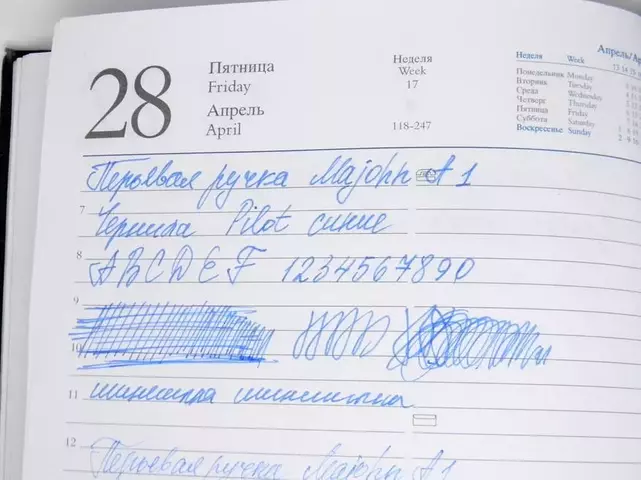 28
Пятница
Friday
Апрель
April
Неделя
Week
17
118-247
Апрель/Ap
Неделя Week 13 14 15
Понедельник Monday
Вторник Tuesday
Среда Wednesday
Четверг Thursday
Пятница Friday
Суббота Saturday
Воскресенье Sunday 2 9 16
Перьевая ручка Majohn A1
7
Чернила Pilot синие
8
ABCDEF 1234567890
9
10
11
шиншилла
12
Перьевая ручка Majohn A1